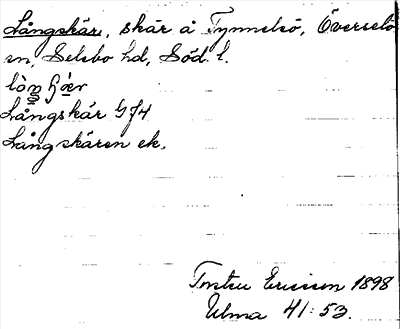 Långskär, skär å Tynnelsö, Överselö
sn, Selebo hd, Söd. l.
Långskär Gf4
Långskären ek.
Torsten Ericsson 1898
Ulma 41:53.